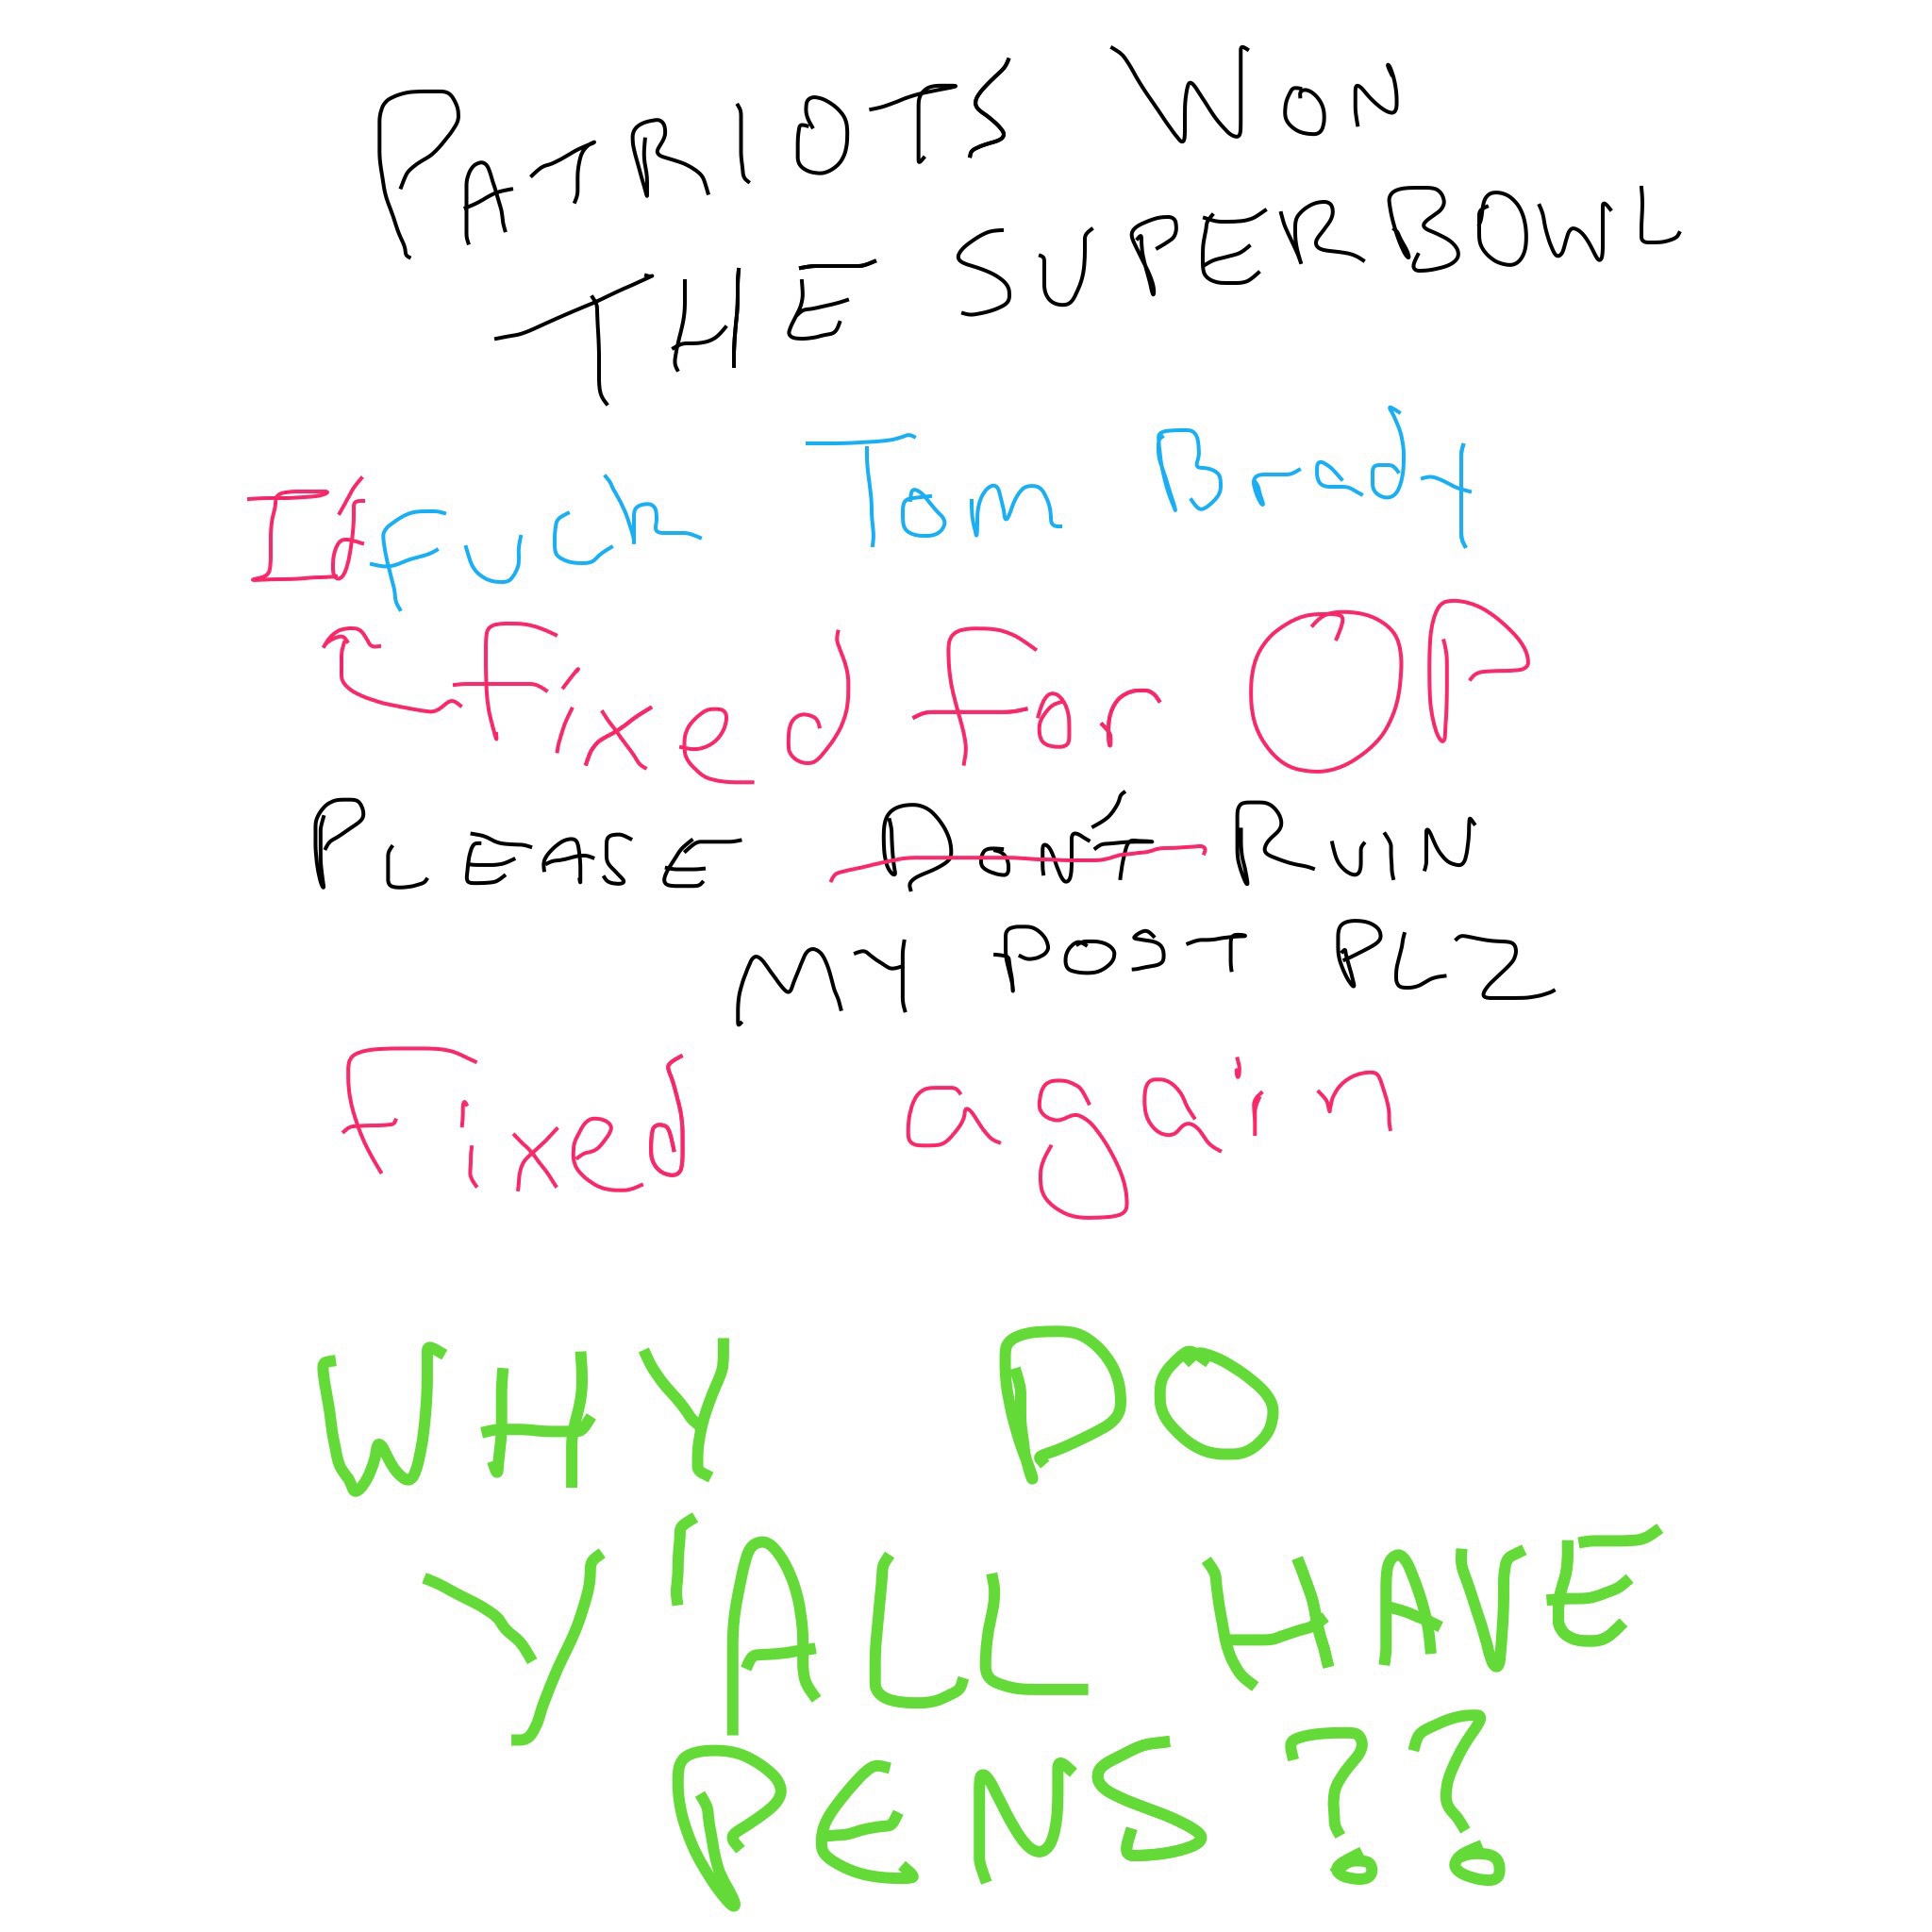 PATRIOTS WON
THE SUPERBOWL
I'd fuck Tom Brady
fixed for OP
PLEASE DON'T RUIN
MY POST PLZ
Fixed again
WHY DO
Y'ALL HAVE
PENS??